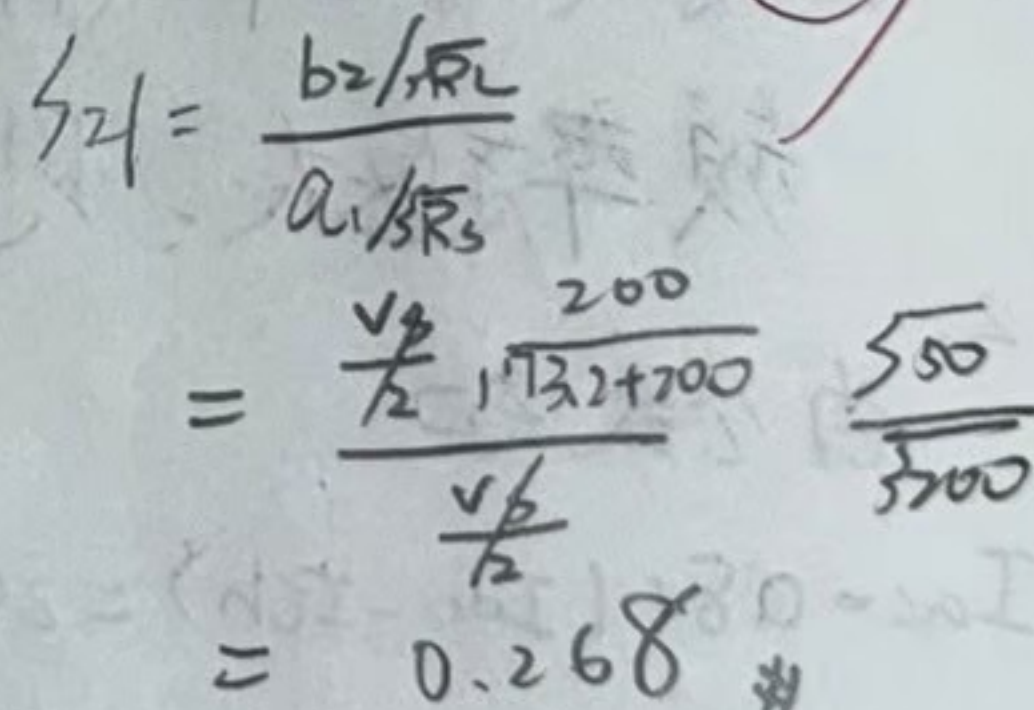 S21 = (b2/√RL)/(a1/√Rs)
= ((Vs/2) · 200/(173.2+200))/(Vs/2) √50/√200
= 0.268 #